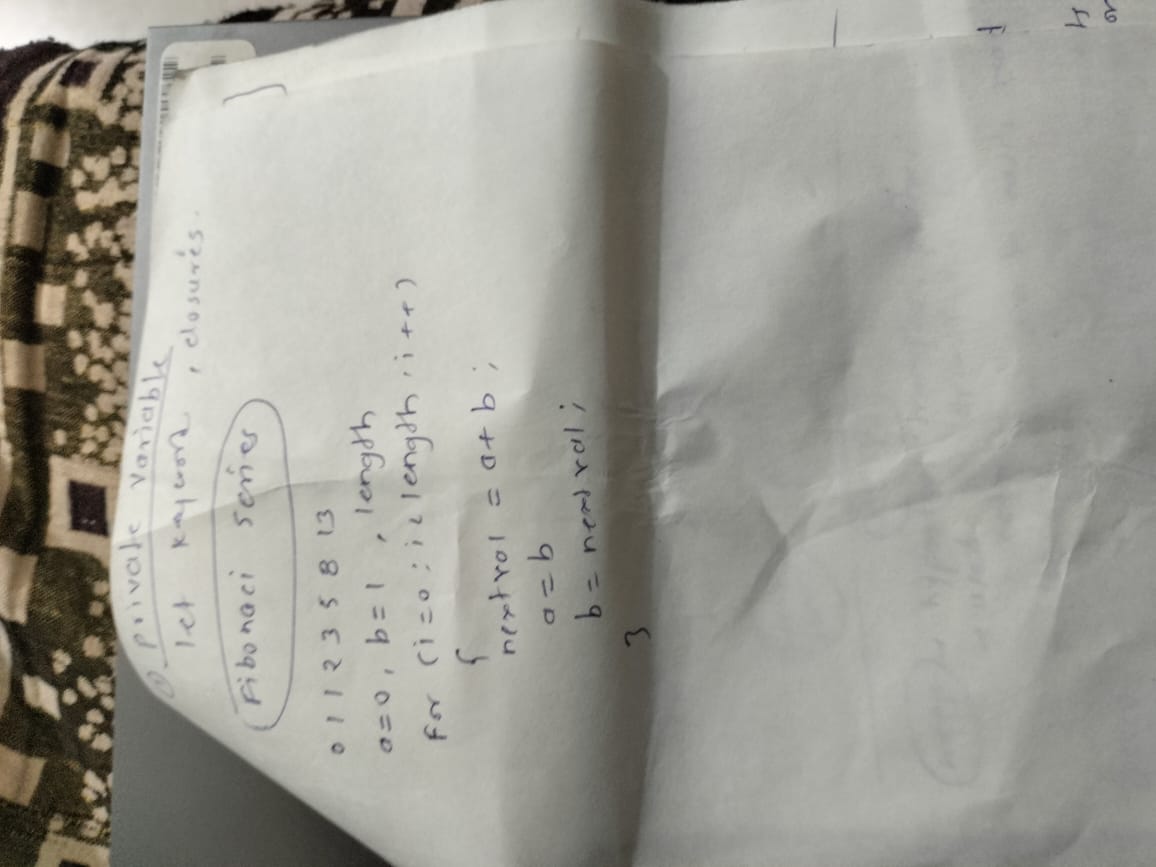 private variable
let keyword, closures.
Fibonaci series
0 1 1 2 3 5 8 13
a=0, b=1, length
For (i=0; i<length; i++)
{
nextval = a+b;
a=b
b=nextval;
}